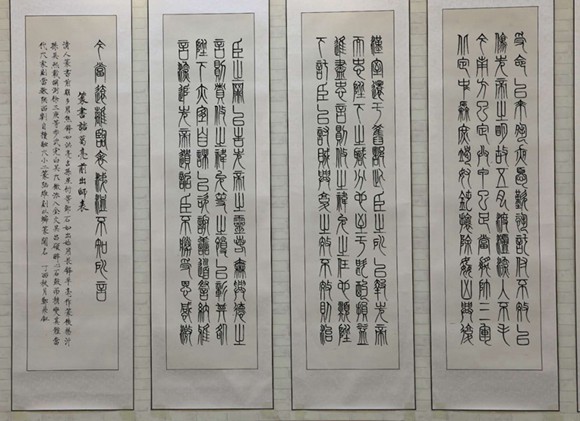 受命以來夙夜憂歎恐託付不效以
傷先帝之明故五月渡瀘深入不毛
今南方已定兵甲已足當獎帥三軍
北定中原庶竭駑鈍攘除姦凶興復
漢室還于舊都此臣之所以報先帝
而忠陛下之職分也至于斟酌損益
進盡忠言則攸之禕允之任也願陛
下託臣以討賊興復之效不效則治
臣之罪以告先帝之靈若無興德之
言則責攸之禕允等之慢以彰其咎
陛下亦宜自謀以諮諏善道察納雅
言深追先帝遺詔臣不勝受恩感激
今當遠離臨表涕零不知所言
篆書諸葛亮前出師表